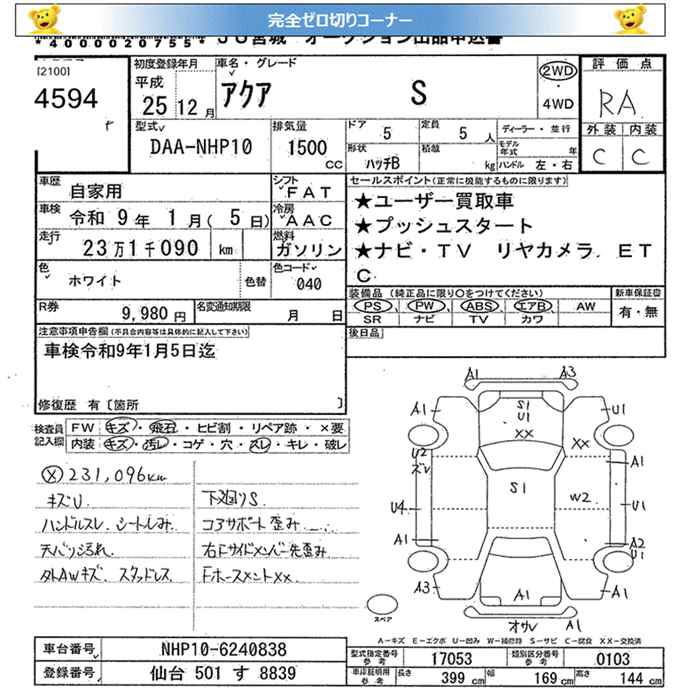 完全ゼロ切りコーナー
*4000020755* JU宮城 オークション出品申込書
[2100]
4594
初度登録年月
平成
25 12 月
車名・グレード
アクア S
2WD
・
4WD
評価点
RA
外装 内装
C C
型式
DAA-NHP10
排気量
1500
CC
ドア 5
形状
ハッチB
定員 5 人
積載 kg
ディーラー・並行
モデル年式 年
ハンドル 左・右
車歴
自家用
シフト
FAT
車検
令和 9 年 1 月 ( 5 日)
冷房
AAC
走行
23 万 1 千 090 km
燃料
ガソリン
色
ホワイト
色替
色コード
040
セールスポイント(正常に機能するものに限ります)
★ユーザー買取車
★プッシュスタート
★ナビ・TV リヤカメラ. ET
C
装備品(純正品に限り○をつけてください)
新車保証書
PS PW ABS エアB AW
SR ナビ TV カワ
有・無
R券
9,980 円
名変通知期限
月 日
後日品
注意事項申告欄(不具合内容等は具体的に記入して下さい)
車検令和9年1月5日迄
修復歴 有〔箇所 〕
検査員
記入欄
FW キズ・飛石・ヒビ割・リペア跡・×要
内装 キズ・汚レ・コゲ・穴・スレ・キレ・破レ
Ⓧ 231,096km
キズU.
下廻りS
ハンドルスレ シートしみ.
コアサポート歪み.
天バリ汚れ.
右Fサイドメンバー先歪み
外AWキズ. スタッドレス
Fホースメントxx
A1 A3
A1 S1 U1
U1
XX XX
U2
ズレ
A1
S1
U4 W2 U1
A1 A2
U1
A3 A1 A1
オサレ A1
スペア
A-キズ E-エクボ U-凹み W-補修跡 S-サビ C-腐食 XX-交換済
車台番号
NHP10-6240838
登録番号
仙台 501 す 8839
型式指定番号
参考
17053
類別区分番号
参考
0103
車庫証明用
参考
長さ 399 cm 幅 169 cm 高さ 144 cm